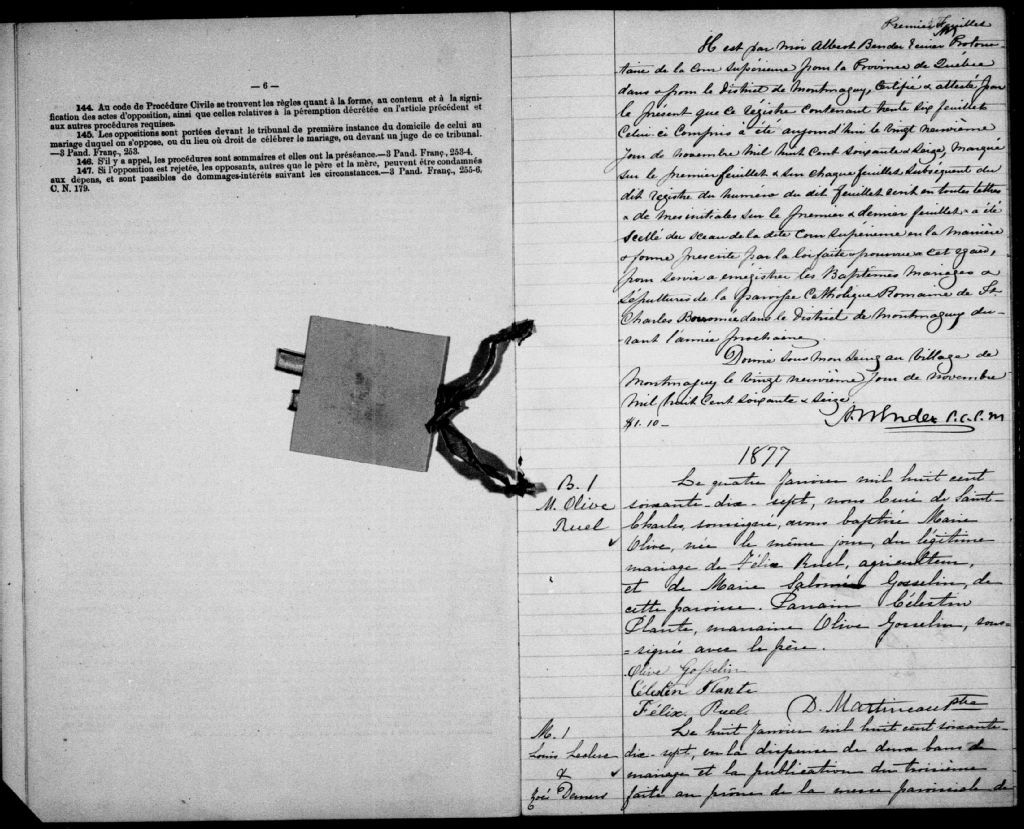 — 6 —
144. Au code de Procédure Civile se trouvent les règles quant à la forme, au contenu et à la signi-
fication des actes d'opposition, ainsi que celles relatives à la péremption décrétée en l'article précédent et
aux autres procédures requises.
145. Les oppositions sont portées devant le tribunal de première instance du domicile de celui au
mariage duquel on s'oppose, ou du lieu où droit de célébrer le mariage, ou devant un juge de ce tribunal.
—3 Pand. Franç., 253.
146. S'il y a appel, les procédures sont sommaires et elles ont la préséance.—3 Pand. Franç., 253-4.
147. Si l'opposition est rejetée, les opposants, autres que le père et la mère, peuvent être condamnés
aux dépens, et sont passibles de dommages-intérêts suivant les circonstances.—3 Pand. Franç., 255-6,
C. N. 179.
Premier Feuillet
Il est par moi Albert Bender Ecuier Protono-
taire de la Cour Supérieure pour la Province de Québec
dans & pour le District de Montmagny, Certifié & attesté par
le présent que ce Régistre contenant trente six feuillets
Celui ci Compris a été aujourd'hui le vingt neuvième
jour de novembre mil huit Cent soixante & seize, marqué
sur le premier feuillet & sur chaque feuillet subséquent du
dit Registre du numéro du dit feuillet écrit en toutes lettres
& de mes initiales sur le premier & dernier feuillet & a été
scellé du sceau de la dite Cour Supérieure en la manière
& forme prescrite par la loi faite & pourvue à cet égard,
pour servir a enregistrer les Baptemes Mariages &
Sépultures de la paroisse Catholique Romaine de St.
Charles Borromée dans le District de Montmagny du-
rant l'année prochaine.
Donné sous mon seing au Village de
Montmagny le vingt neuvième jour de novembre
mil huit Cent soixante & seize
$1.10 — A. Bender P.C.S.M
1877
B. 1
M. Olive
Ruel
Le quatre Janvier mil huit cent
soixante-dix-sept, nous Curé de Saint-
Charles, soussigné, avons baptisé Marie
Olive, née le même jour, du légitime
mariage de Félix Ruel, agriculteur,
et de Marie Salomée Gosselin, de
cette paroisse. Parrain Célestin
Plante, marraine Olive Gosselin, sous-
=signés avec le père.
Olive Gosselin
Célestin Plante
Félix Ruel D. Martineau Ptre
M. 1
Louis Leclerc
&
Zoé Demers
Le huit Janvier mil huit cent soixante-
dix-sept, vu la dispense de deux bans de
mariage et la publication du troisième
faite au prône de la messe paroissiale de